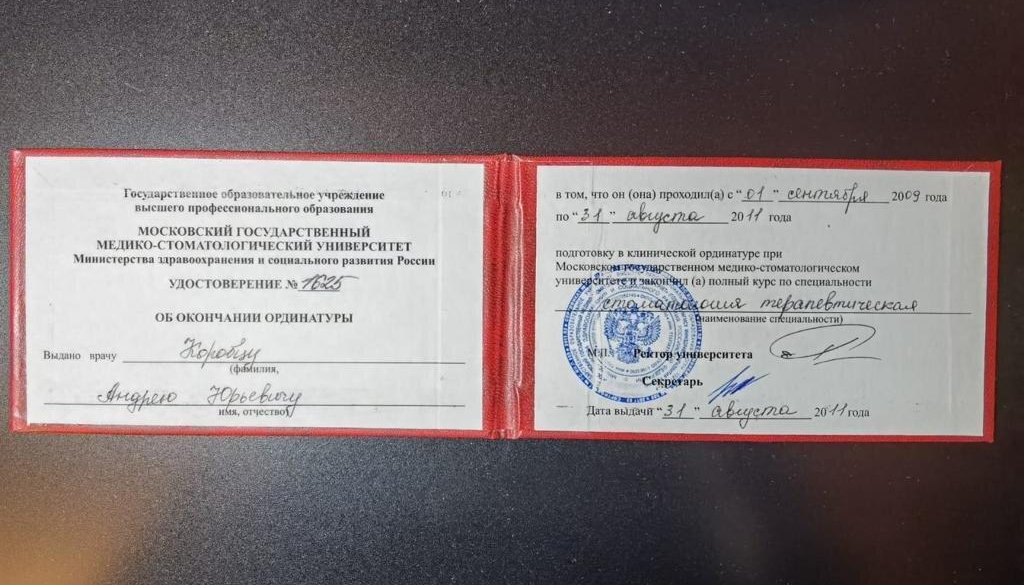 Государственное образовательное учреждение
высшего профессионального образования
МОСКОВСКИЙ ГОСУДАРСТВЕННЫЙ
МЕДИКО-СТОМАТОЛОГИЧЕСКИЙ УНИВЕРСИТЕТ
Министерства здравоохранения и социального развития России
УДОСТОВЕРЕНИЕ № 1625
ОБ ОКОНЧАНИИ ОРДИНАТУРЫ
Выдано врачу Коробцу
(фамилия,
Андрею Юрьевичу
имя, отчество)
в том, что он (она) проходил(а) с "01" сентября 2009 года
по "31" августа 2011 года
подготовку в клинической ординатуре при
Московском государственном медико-стоматологическом
университете и закончил (а) полный курс по специальности
стоматология терапевтическая
(наименование специальности)
М.П. Ректор университета
Секретарь
Дата выдачи "31" августа 2011 года